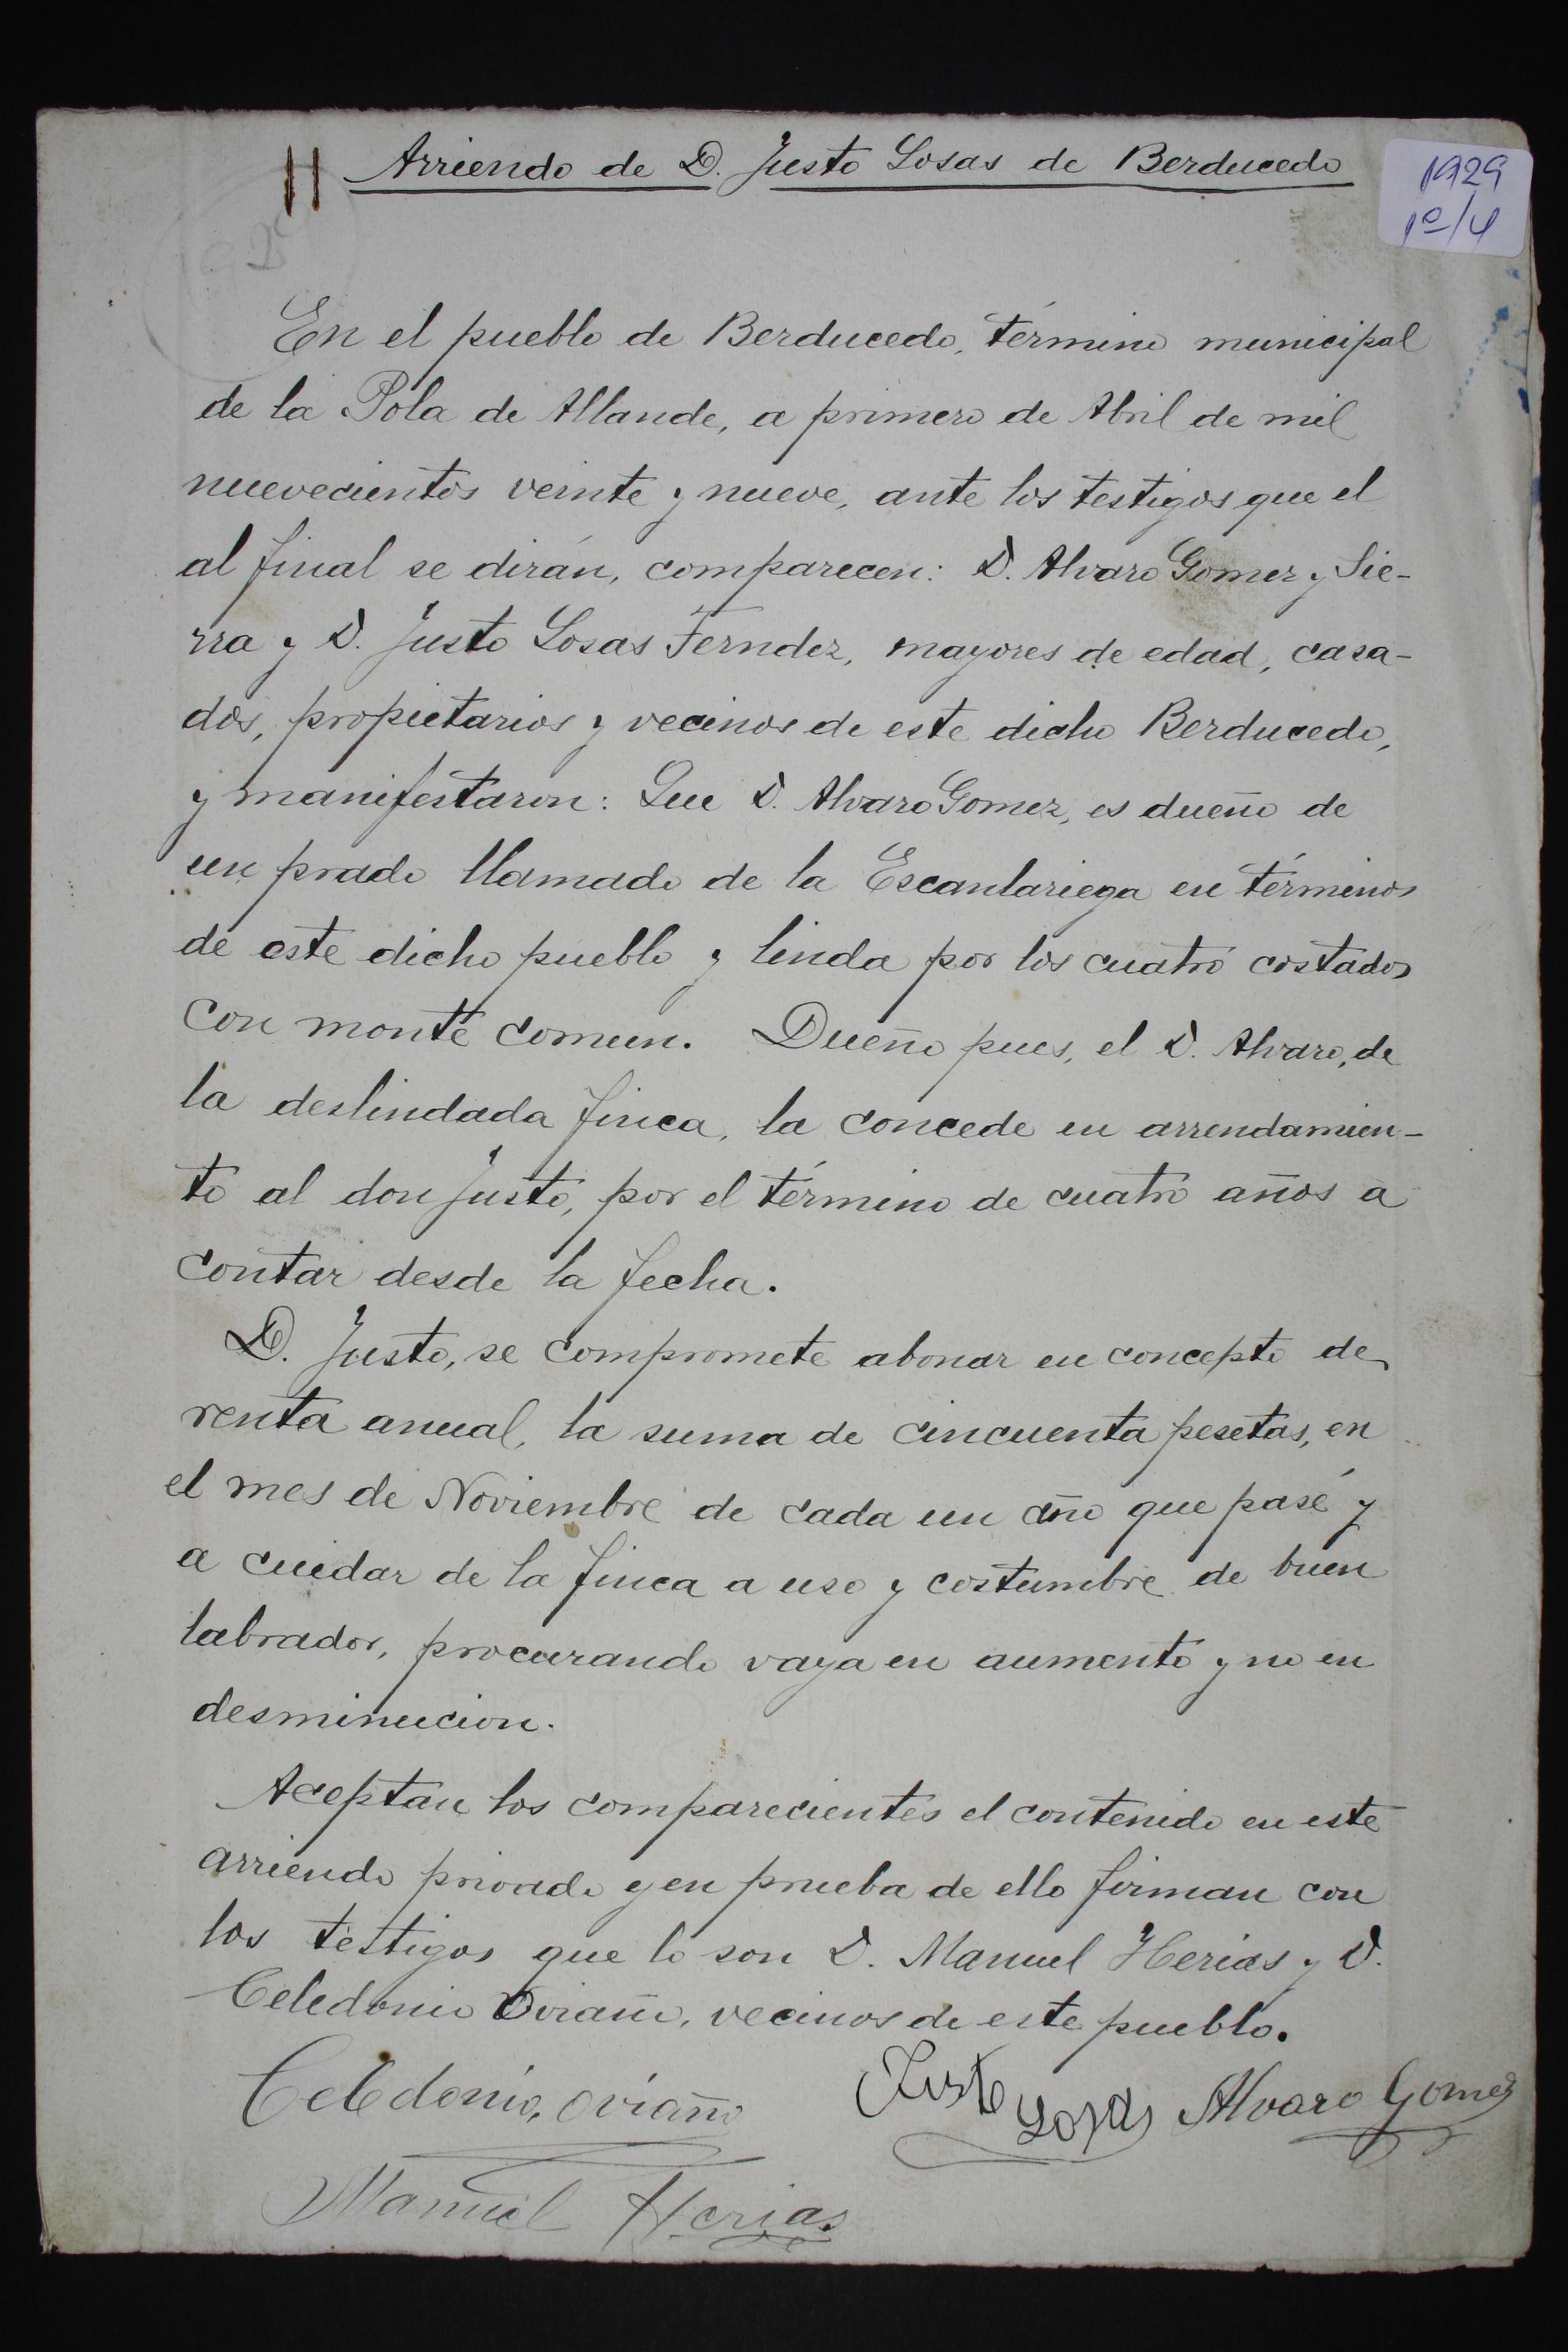 Arriendo de D. Justo Losas de Berducedo
1929
1º/4
En el pueblo de Berducedo, término municipal
de la Pola de Allande, a primero de Abril de mil
nuevecientos veinte y nueve, ante los testigos que el
al final se dirán, comparecen: D. Alvaro Gomez y Sie-
rra y D. Justo Losas Ferndez, mayores de edad, casa-
dos, propietarios y vecinos de este dicho Berducedo,
y manifestaron: Que D. Alvaro Gomez, es dueño de
un prado llamado de la Escanlariega en términos
de este dicho pueblo y linda por los cuatro costados
con monte comun. Dueño pues, el D. Alvaro, de
la deslindada finca, la concede en arrendamien-
to al don Justo, por el término de cuatro años a
contar desde la fecha.
D. Justo, se compromete abonar en concepto de
renta anual, la suma de cincuenta pesetas, en
el mes de Noviembre de cada un año que pase y
a cuidar de la finca a uso y costumbre de buen
labrador, procurando vaya en aumento y no en
desminucion.
Aceptan los comparecientes el contenido en este
arriendo privado y en prueba de ello firman con
los testigos que lo son D. Manuel Herias y D.
Celedonio Oviaño, vecinos de este pueblo.
Celedonio, oviaño Justo Losas Alvaro Gomez
Manuel Herias